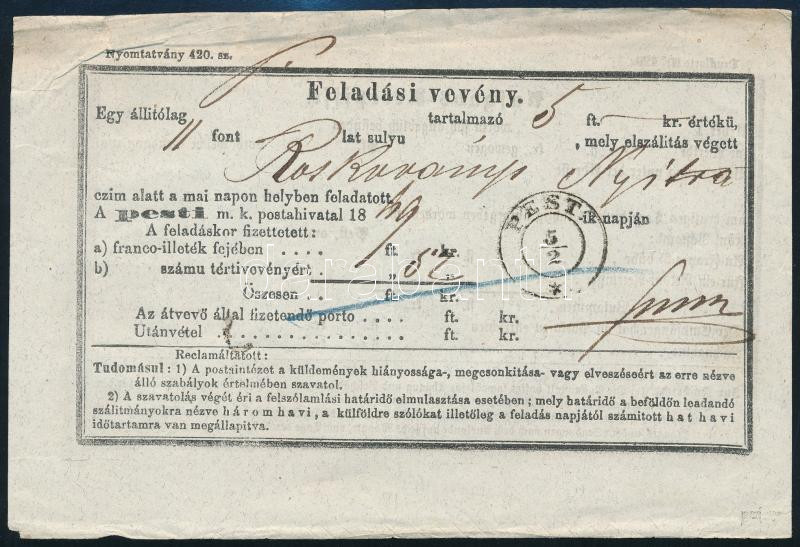 Nyomtatvány 420. sz.
Feladási vevény.
Egy állitólag tartalmazó 5 ft. — kr. értékü,
11 font lat sulyu , mely elszálitás végett
Nyitra
czim alatt a mai napon helyben feladatott.
A pesti m. k. postahivatal 1869 ik napján
A feladáskor fizettetett:
a) franco-illeték fejében .... ft. kr.
b) számu tértivevényért .... „ 52 „
Öszesen .... ft. kr.
Az átvevő által fizetendő porto .... ft. kr.
Utánvétel .................... ft. kr.
PEST
5/2
*
Reclamáltatott:
Tudomásul: 1) A postaintézet a küldemények hiányossága-, megcsonkitása- vagy elveszéseért az erre nézve
álló szabályok értelmében szavatol.
2) A szavatolás végét éri a felszólamlási határidő elmulasztása esetében; mely határidő a befóldön leadandó
szálitmányokra nézve három havi, a külföldre szólókat illetőleg a feladás napjától számitott hat havi
időtartamra van megállapitva.